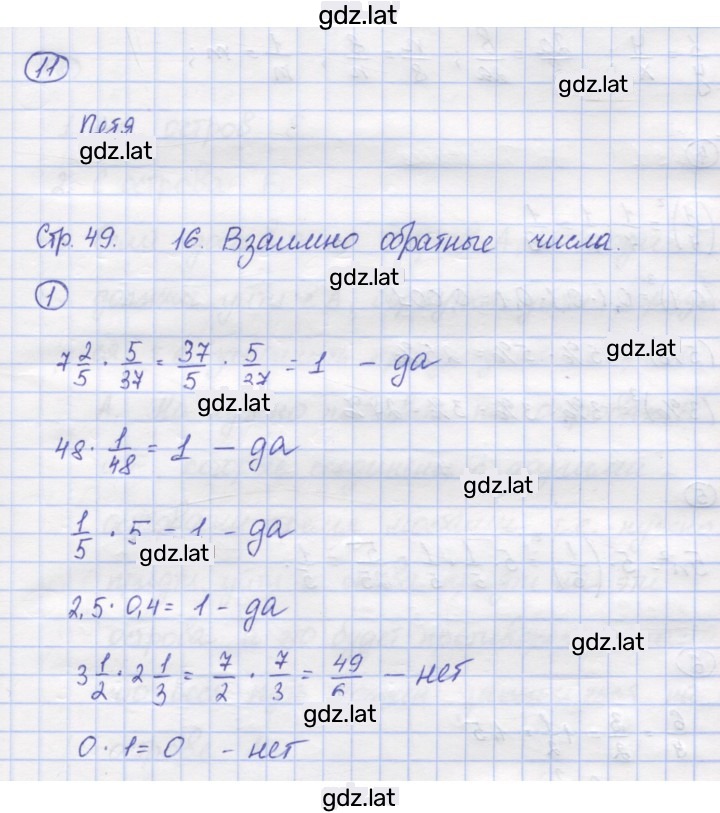 gdz.lat
11
gdz.lat
Петя
gdz.lat
Стр. 49. 16. Взаимно обратные числа.
gdz.lat
1
gdz.lat
7 2/5 · 5/37 = 37/5 · 5/27 = 1 - да
gdz.lat
48 · 1/48 = 1 - да
gdz.lat
1/5 · 5 - 1 - да
gdz.lat
2,5 · 0,4 = 1 - да
gdz.lat
3 1/2 · 2 1/3 = 7/2 · 7/3 = 49/6 - нет
gdz.lat
0 · 1 = 0 - нет
gdz.lat